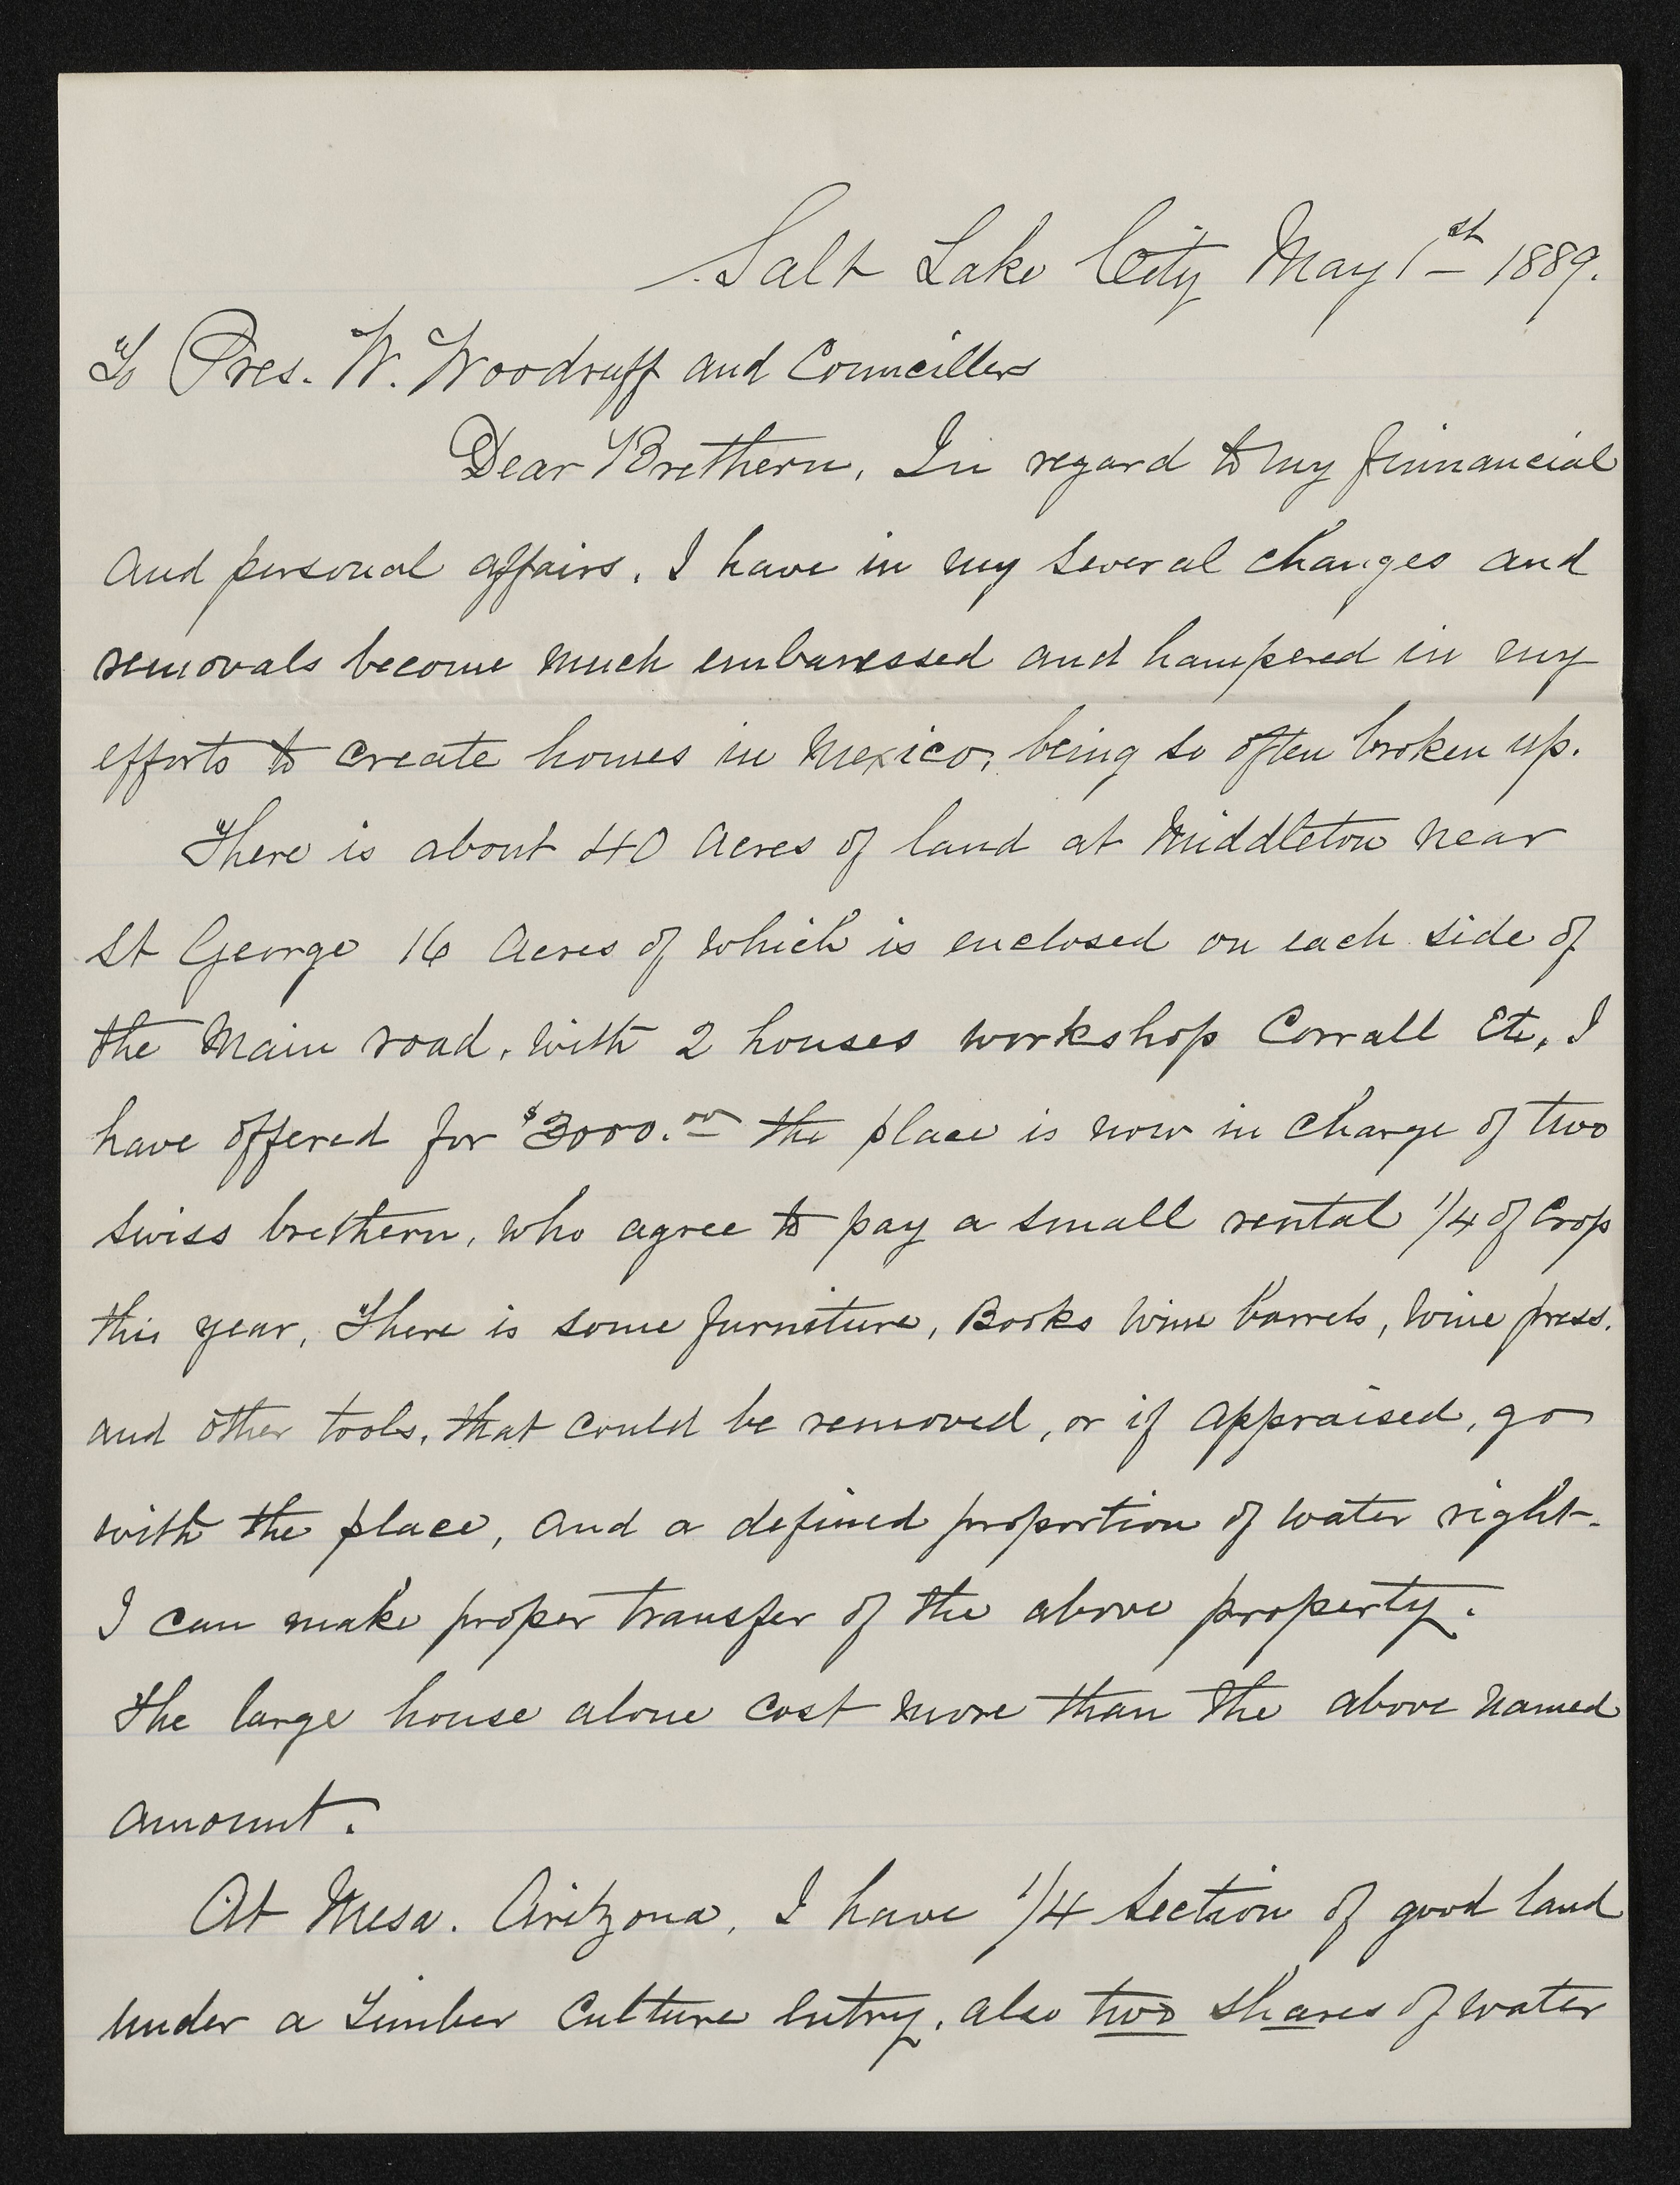 Salt Lake City May 1st 1889.
To Pres. W. Woodruff and Councillers
Dear Brethern, In regard to my finnancial
and personal affairs. I have in my several changes and
removals become much embaressed and hampered in my
efforts to create homes in Mexico, being so often broken up.
There is about 40 acres of land at Middleton near
St George 16 Acres of which is enclosed on each side of
the Main road, with 2 houses workshop Corrall Etc, I
have offered for $3000.00 the place is now in charge of two
Swiss brethern, who agree to pay a small rental 1/4 of Crop
this year, There is some furniture, Books Wine barrels, Wine press.
and other tools, that could be removed, or if appraised, go
with the place, and a defined proportion of water right-.
I can make proper transfer of the above property.
The large house alone cost more than the above named
amount.
At Mesa. Aritzona, I have 1/4 Section of good land
under a Timber Culture Entry, also two shares of water